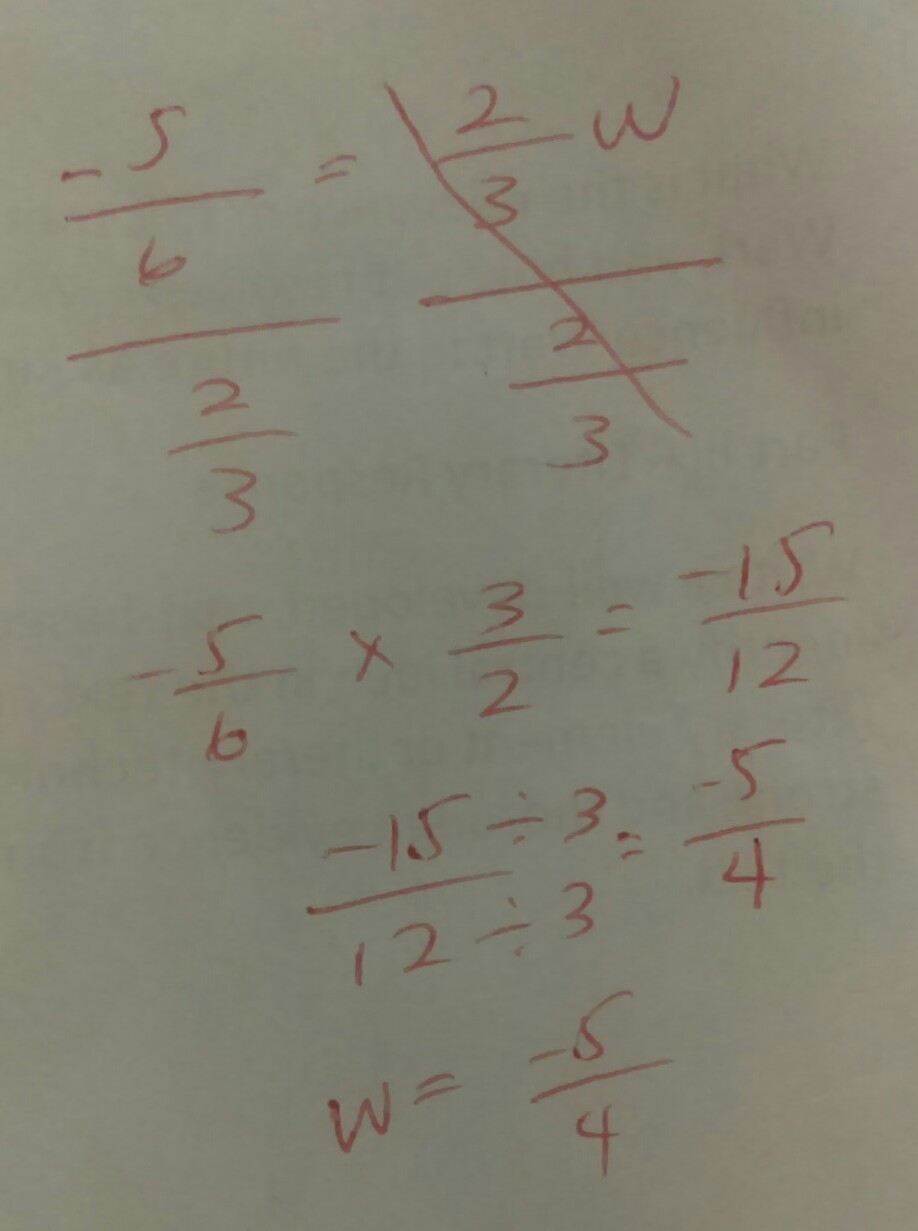 -5/6 = 2/3 W
2/3 2/3
-5/6 × 3/2 = -15/12
-15 ÷ 3 / 12 ÷ 3 = -5/4
W = -5/4